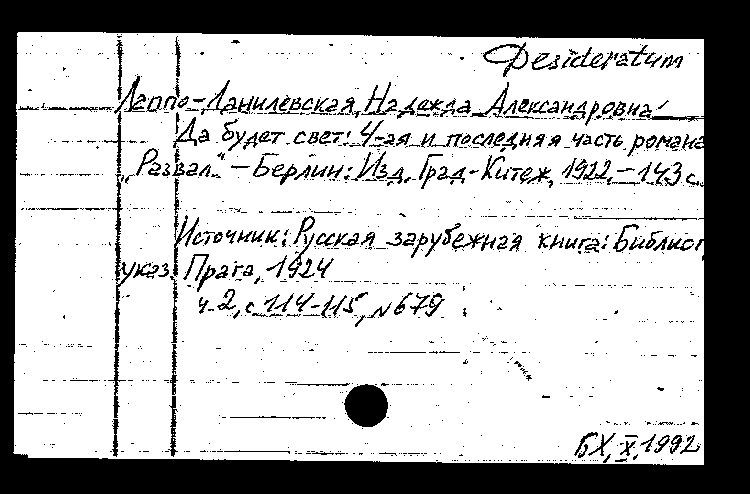 Desideratum
Лаппо-Данилевская, Надежда Александровна
Да будет свет! 4-ая и последняя часть романа
„Развал“ – Берлин: Изд. Град-Китеж, 1922. – 143 с.
Источник: Русская зарубежная книга: Библиог
указ. Прага, 1924
ч. 2, с 114-115, №679
БХ, X, 1992